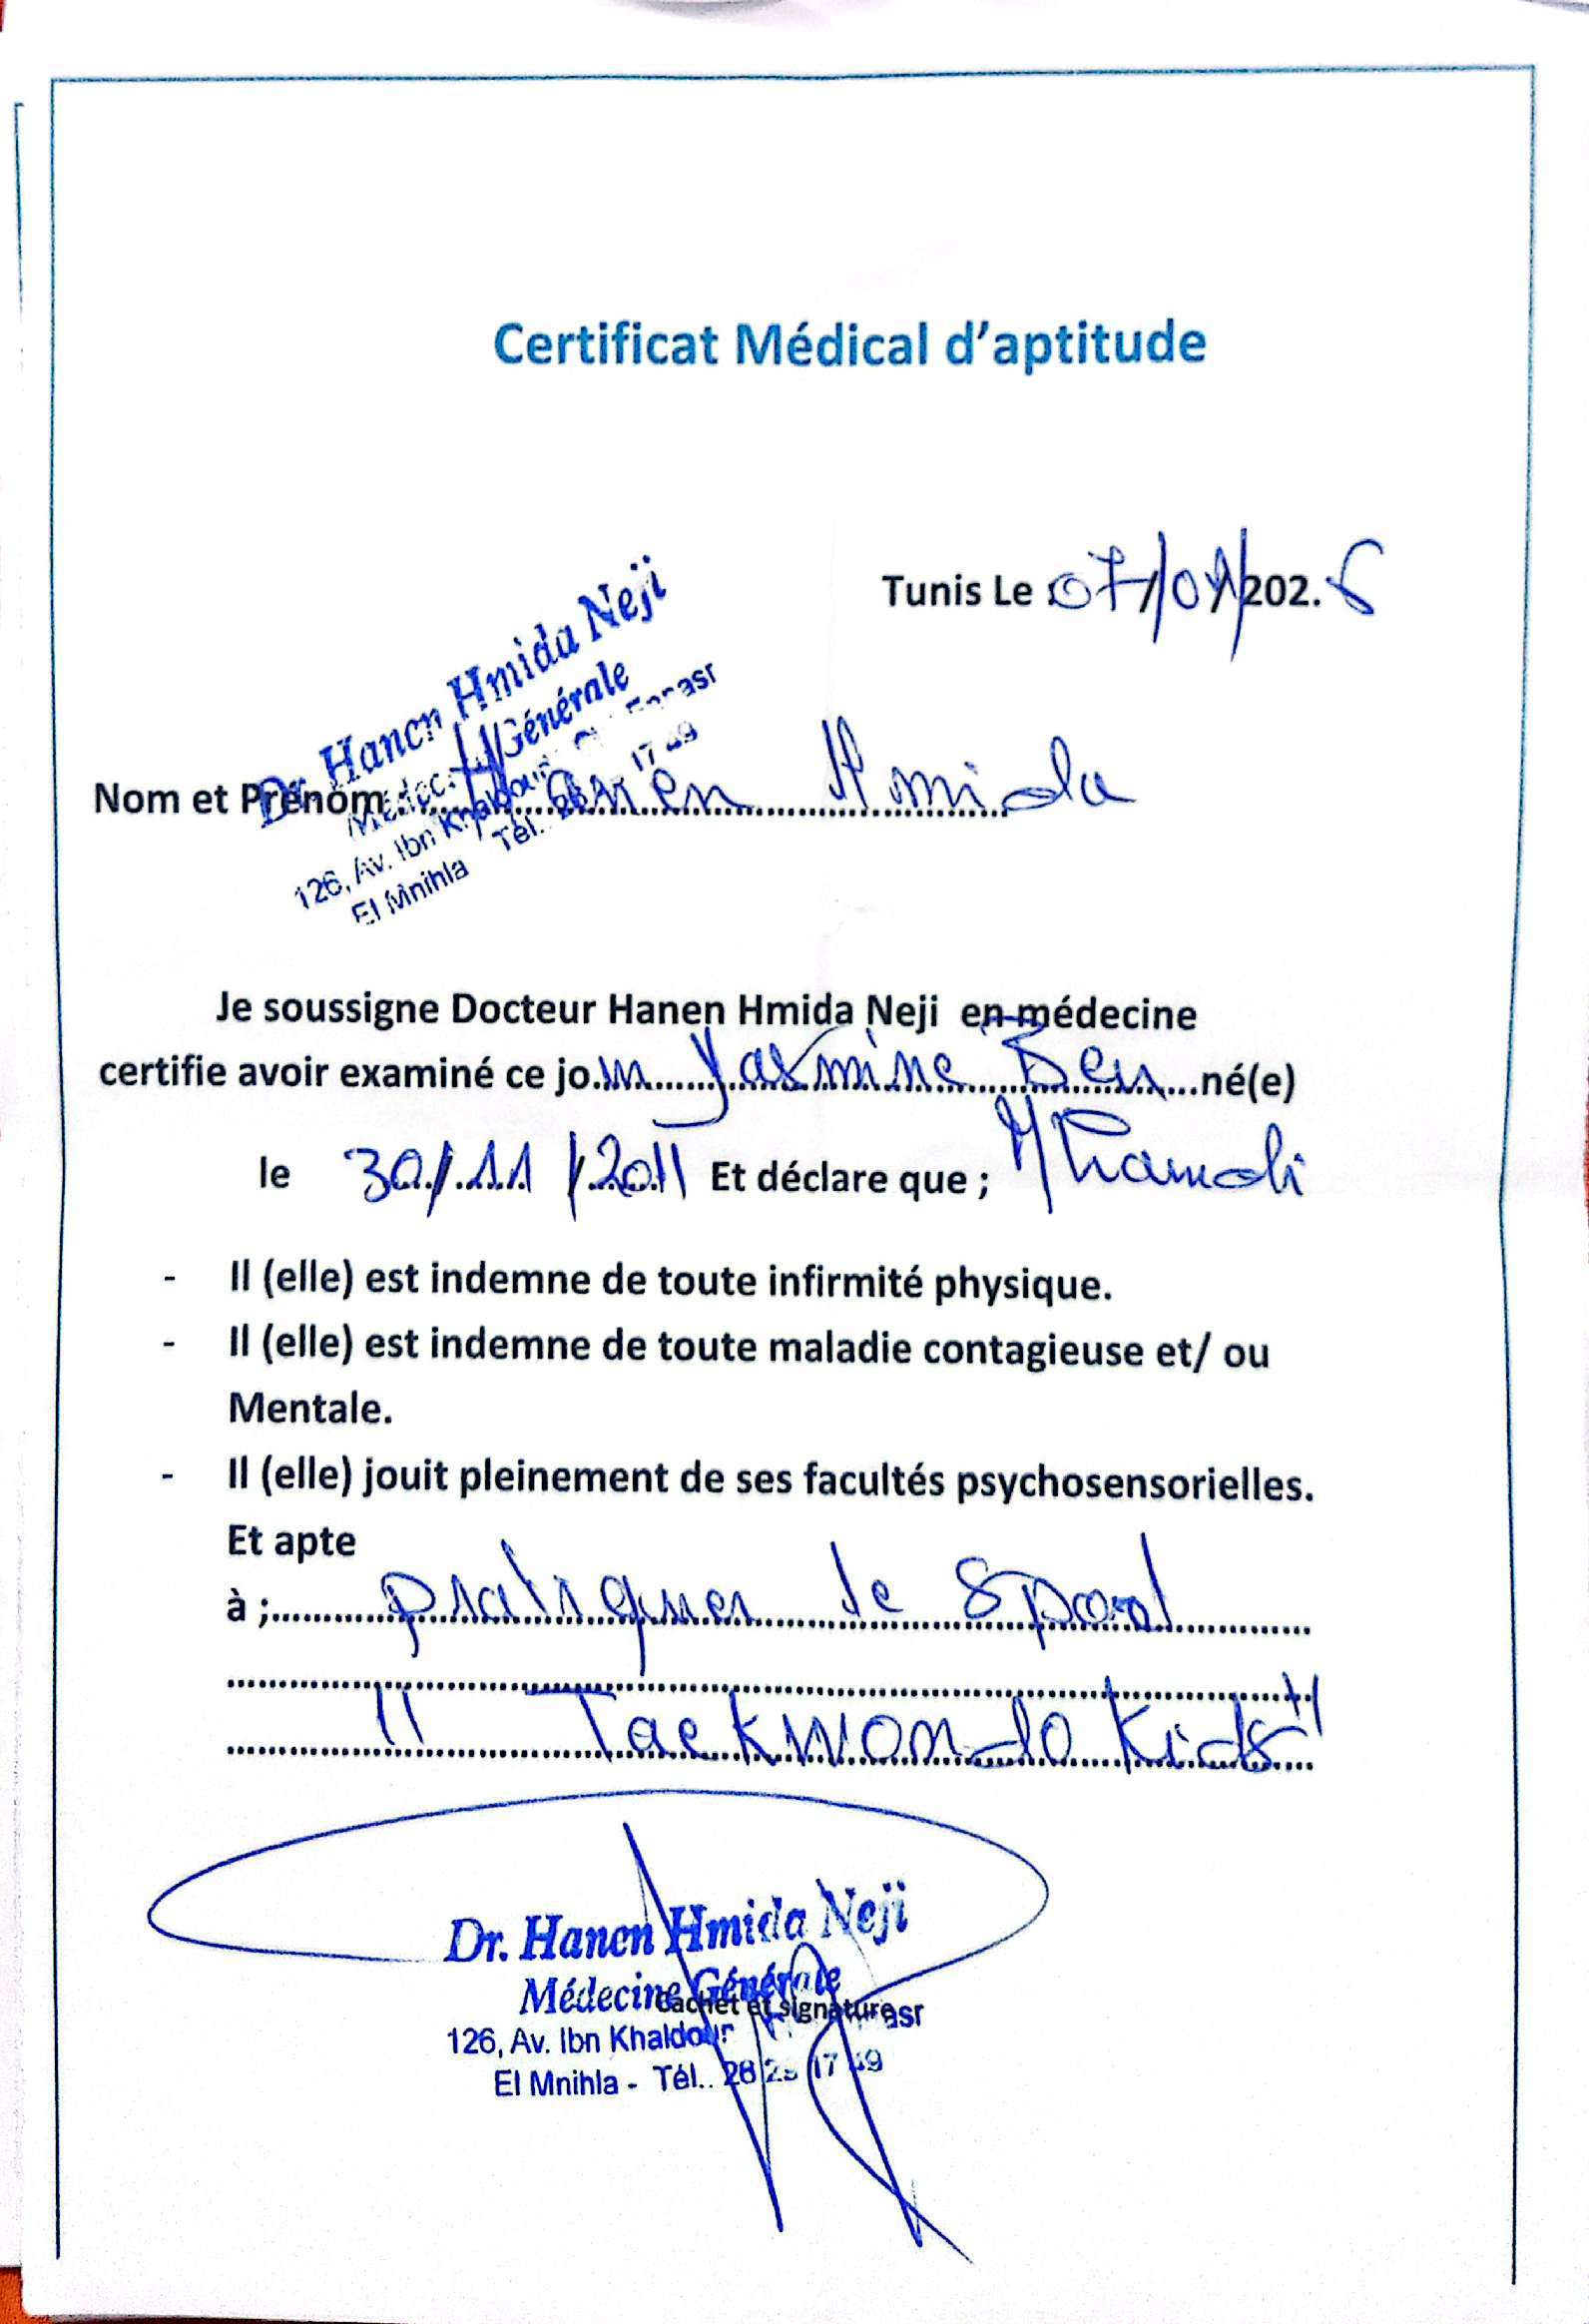 Certificat Médical d'aptitude
Tunis Le 07/01/2026
Dr. Hanen Hmida Neji
Générale
126, Av. Ibn
El Mnihla Tél.
Nom et Prénom Hanen Hmida
Je soussigne Docteur Hanen Hmida Neji en médecine
certifie avoir examiné ce jo.ur Yasmine Ben né(e)
le 30/11/2011 Et déclare que ; Mhamdi
- Il (elle) est indemne de toute infirmité physique.
- Il (elle) est indemne de toute maladie contagieuse et/ ou
Mentale.
- Il (elle) jouit pleinement de ses facultés psychosensorielles.
Et apte
à ; pratiquer le sport
" Taekwondo Kids "
Dr. Hanen Hmida Neji
Médecine Générale
Cachet et signature
126, Av. Ibn Khaldoun
El Mnihla - Tél.. 17 49